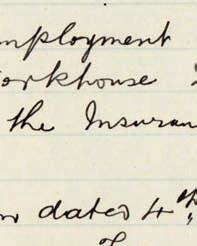 mployment
orkhouse
the Insuran
dated 4th
of